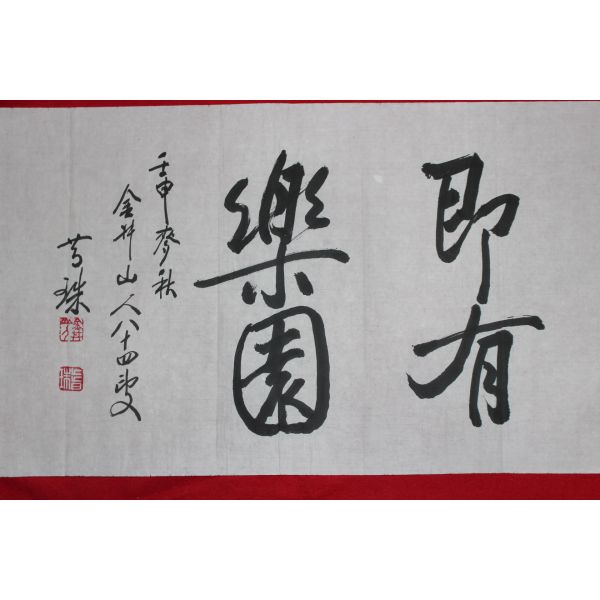 即有
樂園
壬申麥秋
金井山人八十四叟